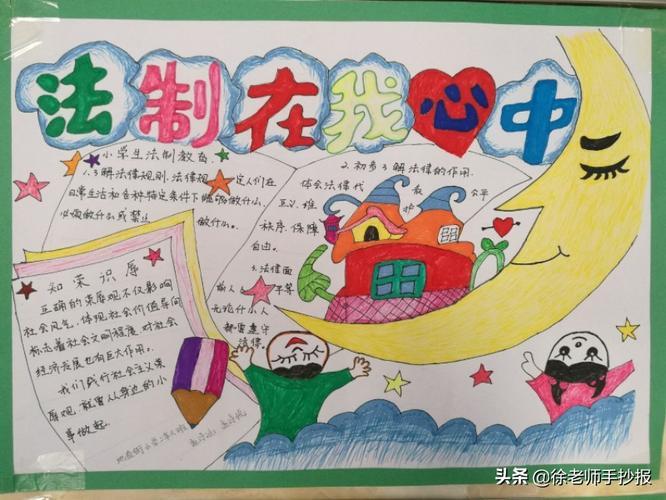 法制在我心中
小学生法制教育
1.了解法律规则,法律规定人们在
日常生活和各种特定条件下能够做什么,
必须做什么或禁止做什么。
2.初步了解法律的作用.
体会法律代表公平
正义、维护
秩序、保障
自由。
3.法律面
前人人平等
无论什么人
都需遵守
法律。
知荣识辱
正确的荣辱观不仅影响
社会风气,体现社会价值导向
标志着社会文明程度,对社会
经济发展也有巨大作用。
我们践行社会主义荣
辱观,就要从身边的小
事做起。
头条 @徐老师手抄报